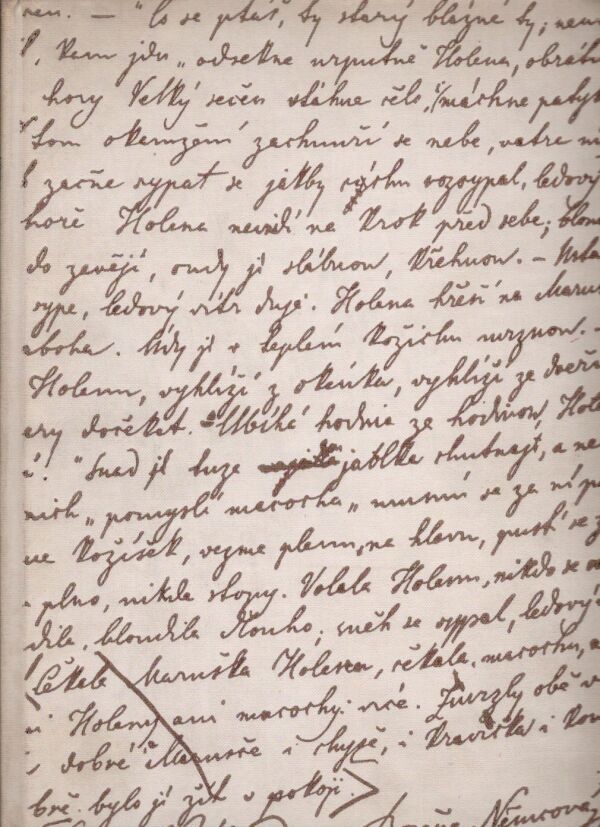 — "Co se ptáš, ty starý blázne ty; nem
kam jdu „ odsekne urputně Holena, obrátí
hory Velký sečen stáhne čelo, máchne paly
tom okamžení zachmuří se nebe,
začne sypat se jakby rozsypal, ledový
hoře Holena nevidí na krok před sebe; blou
do závějí, oudy jí slábnou, křehnou. –
sype, ledový vítr duje. Holena hřeší na Maruš
boha. Oudy jí v teplém kožichu mrznou. –
Holenu, vyhlíží z okénka, vyhlíží ze dveří
dočekat. – Ubíhá hodina za hodinou, Hole
"Snad jí tuze jablka chutnají, a ne
nich „ pomyslí macocha „ musím se za ní po
kožíšek, vezme plenu na hlavu, pustí se z
plno, nikde stopy. Volala Holenu, nikdo se o
dila, bloudila dlouho; sněh se sypal, ledový
Čekala Maruška Holenu, čekala macochu, a
ni Holeny ani macochy více. Zmrzly obě v
dobré Marušce i chýše, i kravička i kou
bylo jí žít v pokoji.
Němcová